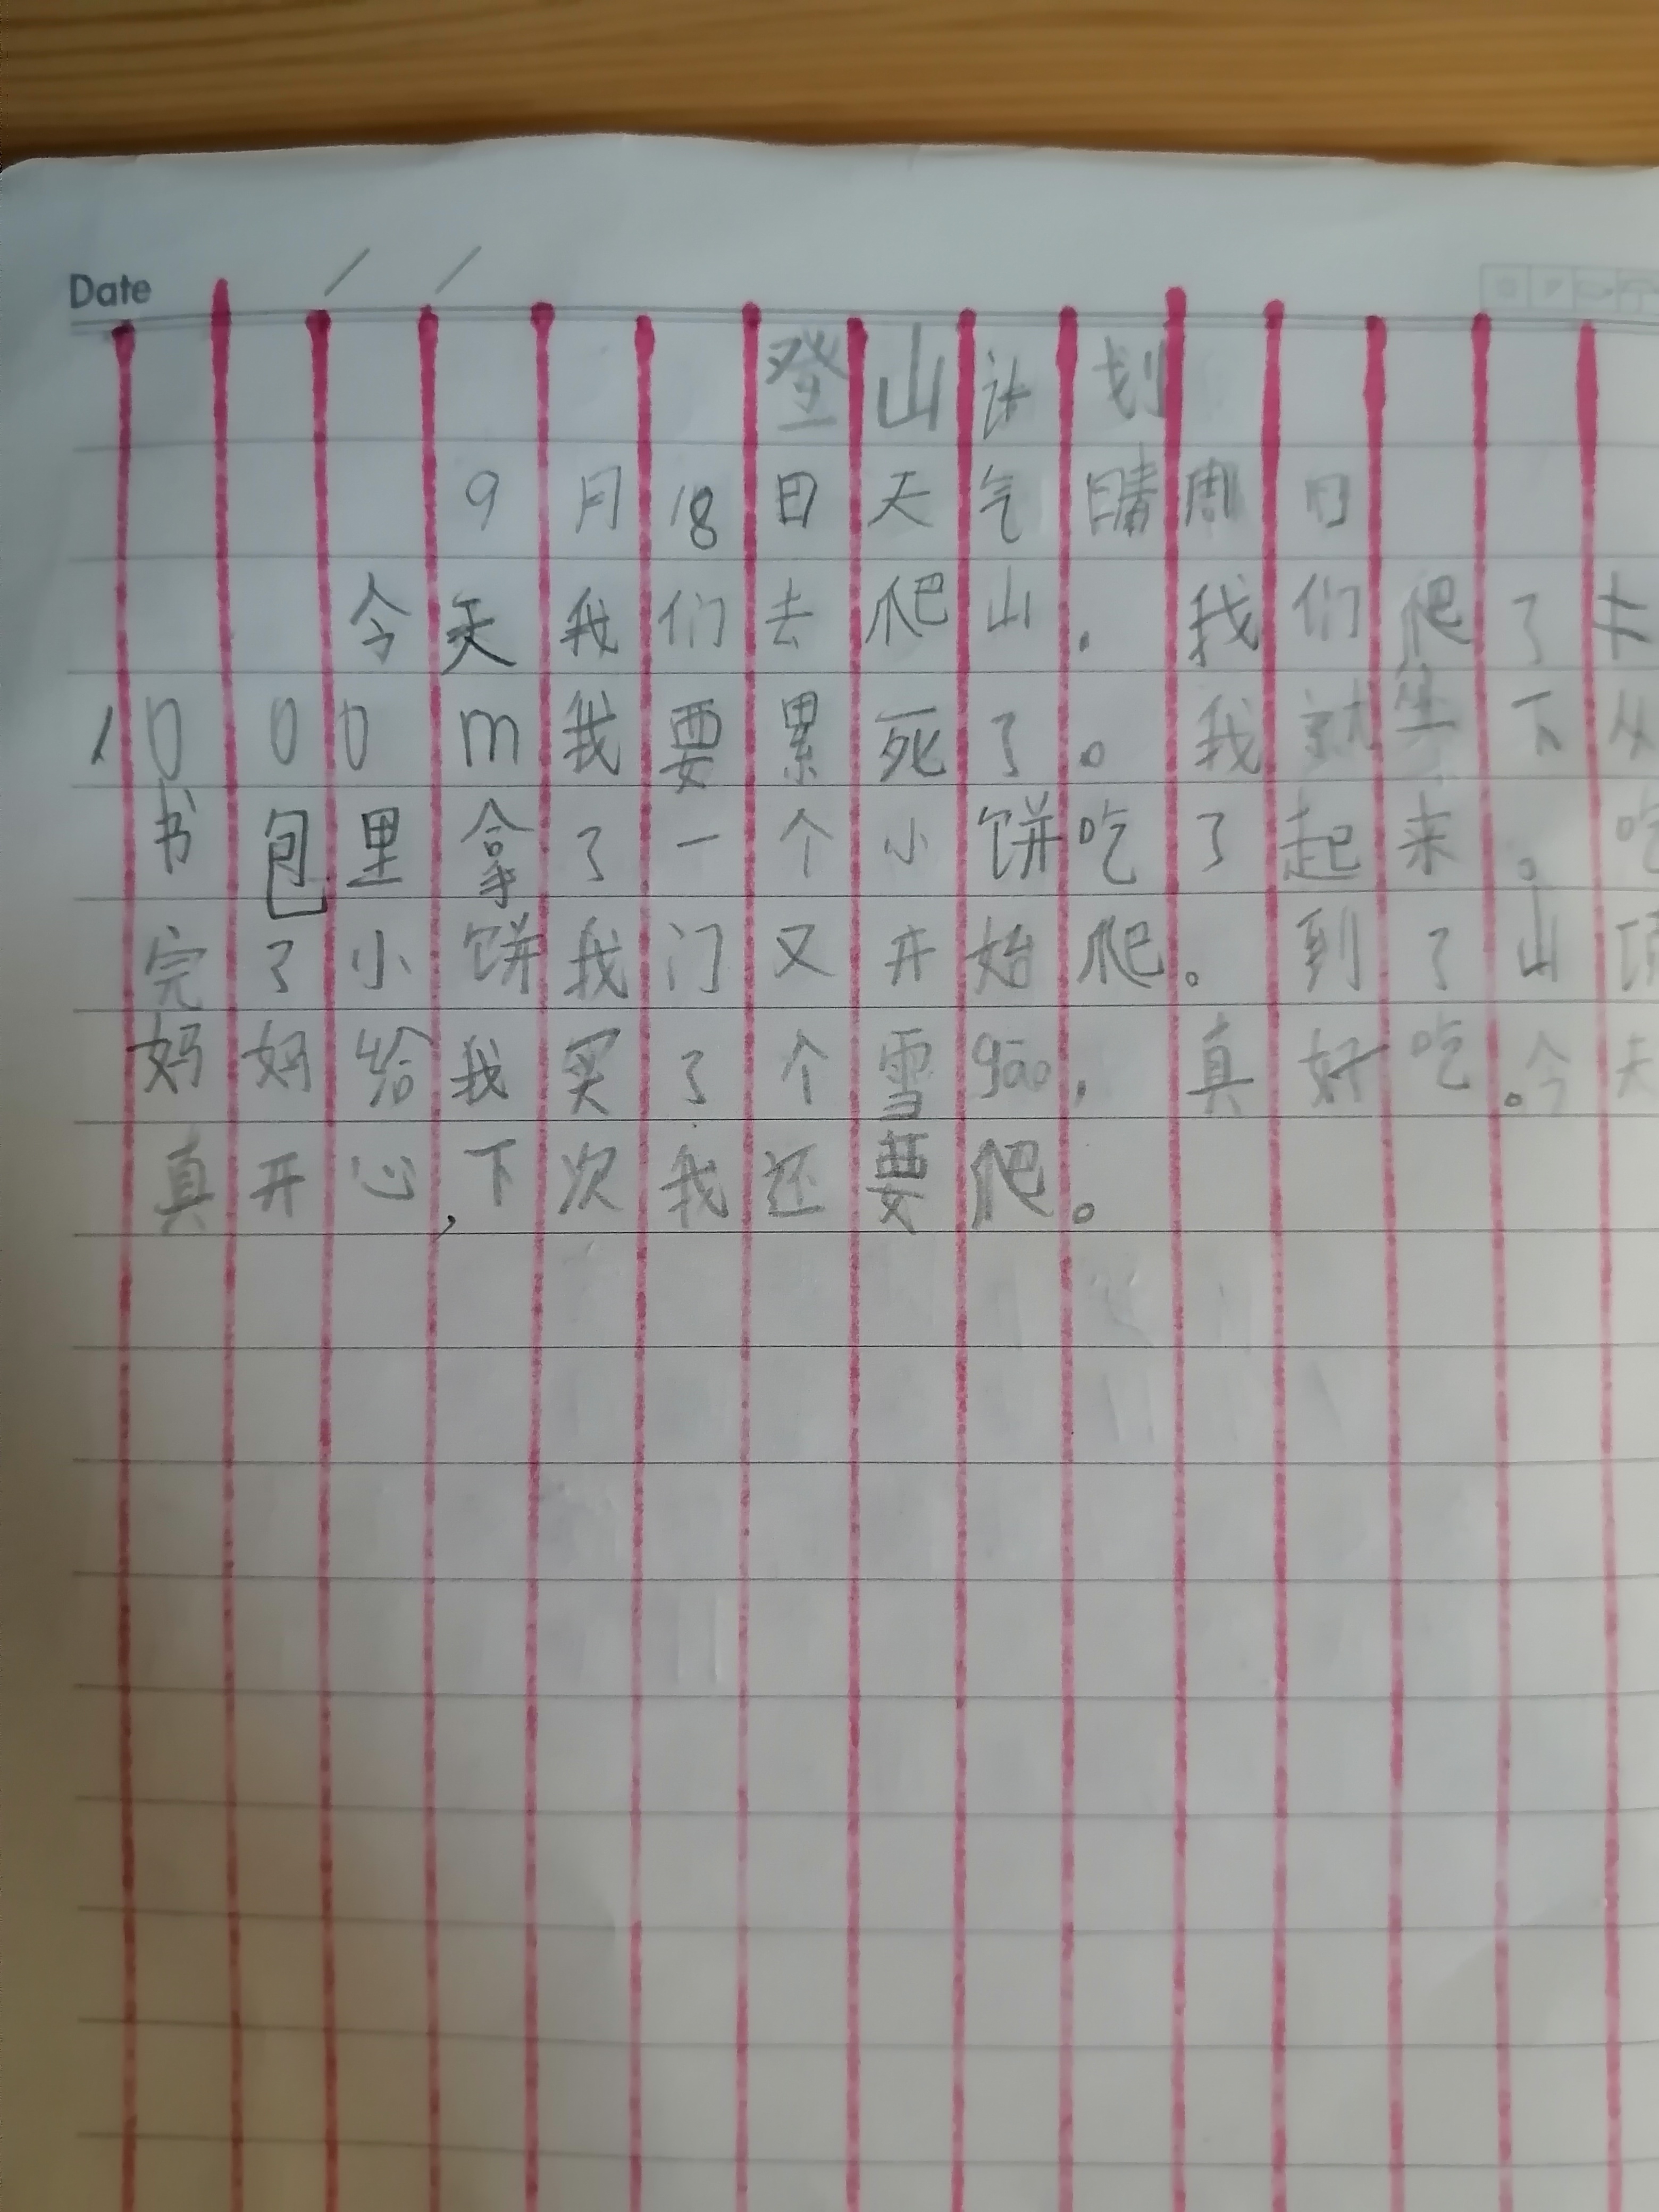 Date / /
登山计划
9月18日天气晴周日
今天我们去爬山.我们爬了
1000m我要累死了。我就坐下从
书包里拿了一个小饼吃了起来。吃
完了小饼我门又开始爬。到了山顶
妈妈给我买了个雪gāo.真好吃。今天
真开心,下次我还要爬。